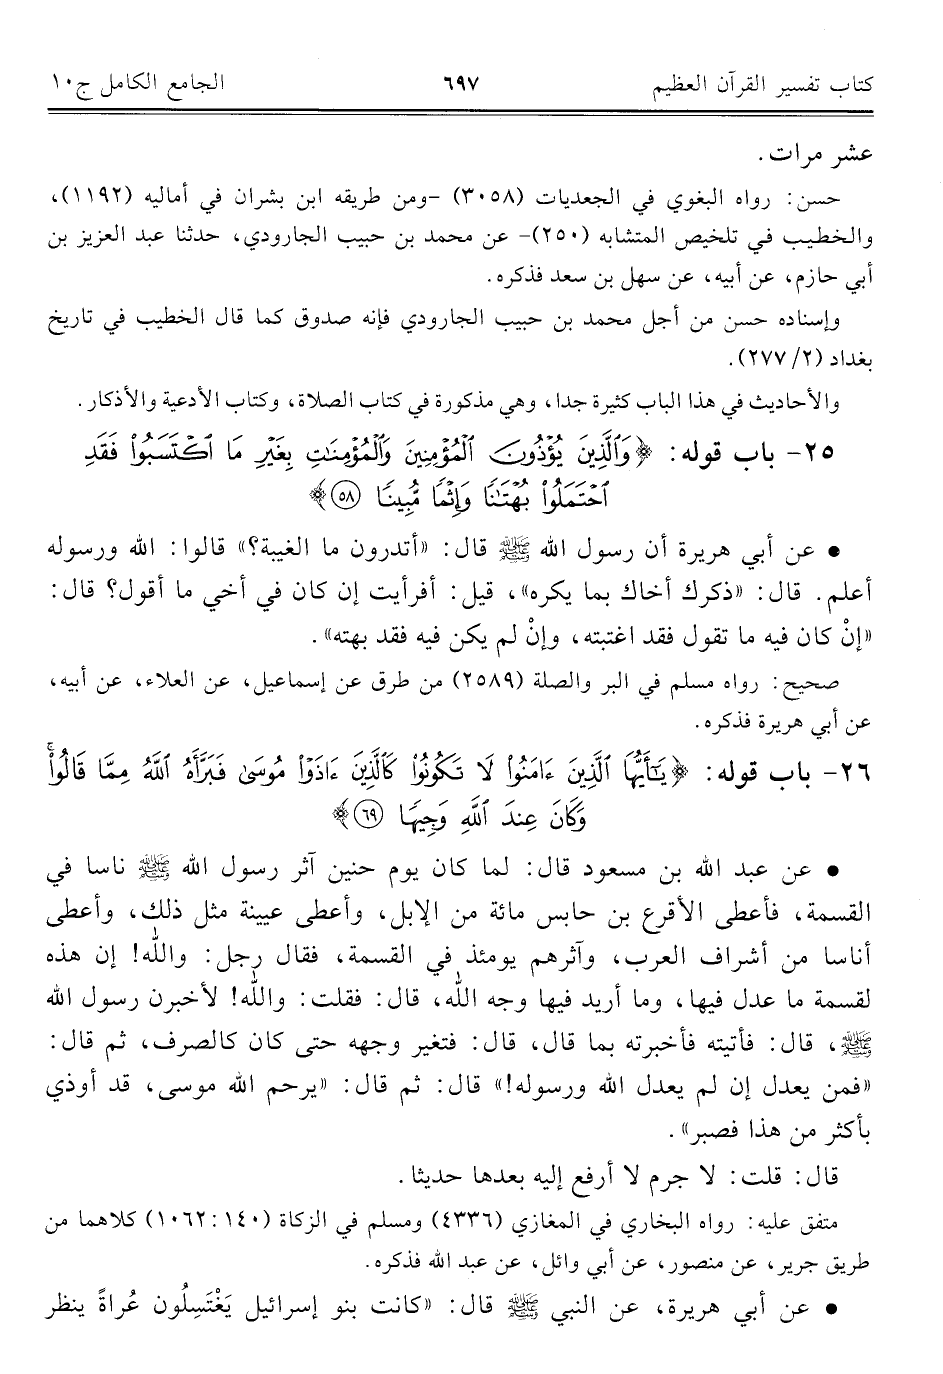 كتاب تفسير القرآن العظيم ٦٩٧ الجامع الكامل ج١٠
عشر مرات.
حسن: رواه البغوي في الجعديات (٣٠٥٨) -ومن طريقه ابن بشران في أماليه (١١٩٢)،
والخطيب في تلخيص المتشابه (٢٥٠)- عن محمد بن حبيب الجارودي، حدثنا عبد العزيز بن
أبي حازم، عن أبيه، عن سهل بن سعد فذكره.
وإسناده حسن من أجل محمد بن حبيب الجارودي فإنه صدوق كما قال الخطيب في تاريخ
بغداد (٢/ ٢٧٧).
والأحاديث في هذا الباب كثيرة جدا، وهي مذكورة في كتاب الصلاة، وكتاب الأدعية والأذكار.
٢٥- باب قوله: ﴿وَٱلَّذِينَ يُؤْذُونَ ٱلْمُؤْمِنِينَ وَٱلْمُؤْمِنَٰتِ بِغَيْرِ مَا ٱكْتَسَبُوا۟ فَقَدِ
ٱحْتَمَلُوا۟ بُهْتَٰنًا وَإِثْمًا مُّبِينًا ٥٨﴾
• عن أبي هريرة أن رسول الله ﷺ قال: «أتدرون ما الغيبة؟» قالوا: الله ورسوله
أعلم. قال: «ذكرك أخاك بما يكره»، قيل: أفرأيت إن كان في أخي ما أقول؟ قال:
«إنْ كان فيه ما تقول فقد اغتبته، وإنْ لم يكن فيه فقد بهته».
صحيح: رواه مسلم في البر والصلة (٢٥٨٩) من طرق عن إسماعيل، عن العلاء، عن أبيه،
عن أبي هريرة فذكره.
٢٦- باب قوله: ﴿يَٰٓأَيُّهَا ٱلَّذِينَ ءَامَنُوا۟ لَا تَكُونُوا۟ كَٱلَّذِينَ ءَاذَوْا۟ مُوسَىٰ فَبَرَّأَهُ ٱللَّهُ مِمَّا قَالُوا۟ۚ
وَكَانَ عِندَ ٱللَّهِ وَجِيهًا ٦٩﴾
• عن عبد الله بن مسعود قال: لما كان يوم حنين آثر رسول الله ﷺ ناسا في
القسمة، فأعطى الأقرع بن حابس مائة من الإبل، وأعطى عيينة مثل ذلك، وأعطى
أناسا من أشراف العرب، وآثرهم يومئذ في القسمة، فقال رجل: والله! إن هذه
لقسمة ما عدل فيها، وما أريد فيها وجه الله، قال: فقلت: والله! لأخبرن رسول الله
ﷺ، قال: فأتيته فأخبرته بما قال، قال: فتغير وجهه حتى كان كالصرف، ثم قال:
«فمن يعدل إن لم يعدل الله ورسوله!» قال: ثم قال: «يرحم الله موسى، قد أوذي
بأكثر من هذا فصبر».
قال: قلت: لا جرم لا أرفع إليه بعدها حديثا.
متفق عليه: رواه البخاري في المغازي (٤٣٣٦) ومسلم في الزكاة (١٤٠: ١٠٦٢) كلاهما من
طريق جرير، عن منصور، عن أبي وائل، عن عبد الله فذكره.
• عن أبي هريرة، عن النبي ﷺ قال: «كانت بنو إسرائيل يَغْتَسِلُون عُراةً ينظر